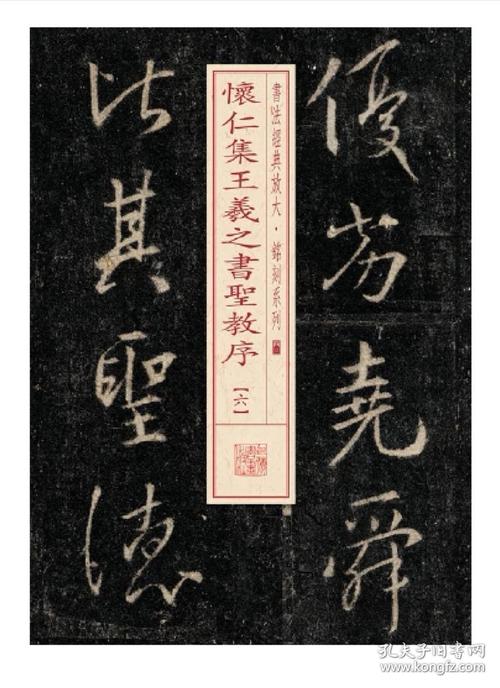 優劣堯舜
書法經典放大·銘刻系列
懷仁集王羲之書聖教序
【六】
比其聖德
孔夫子旧书网
www.kongfz.com